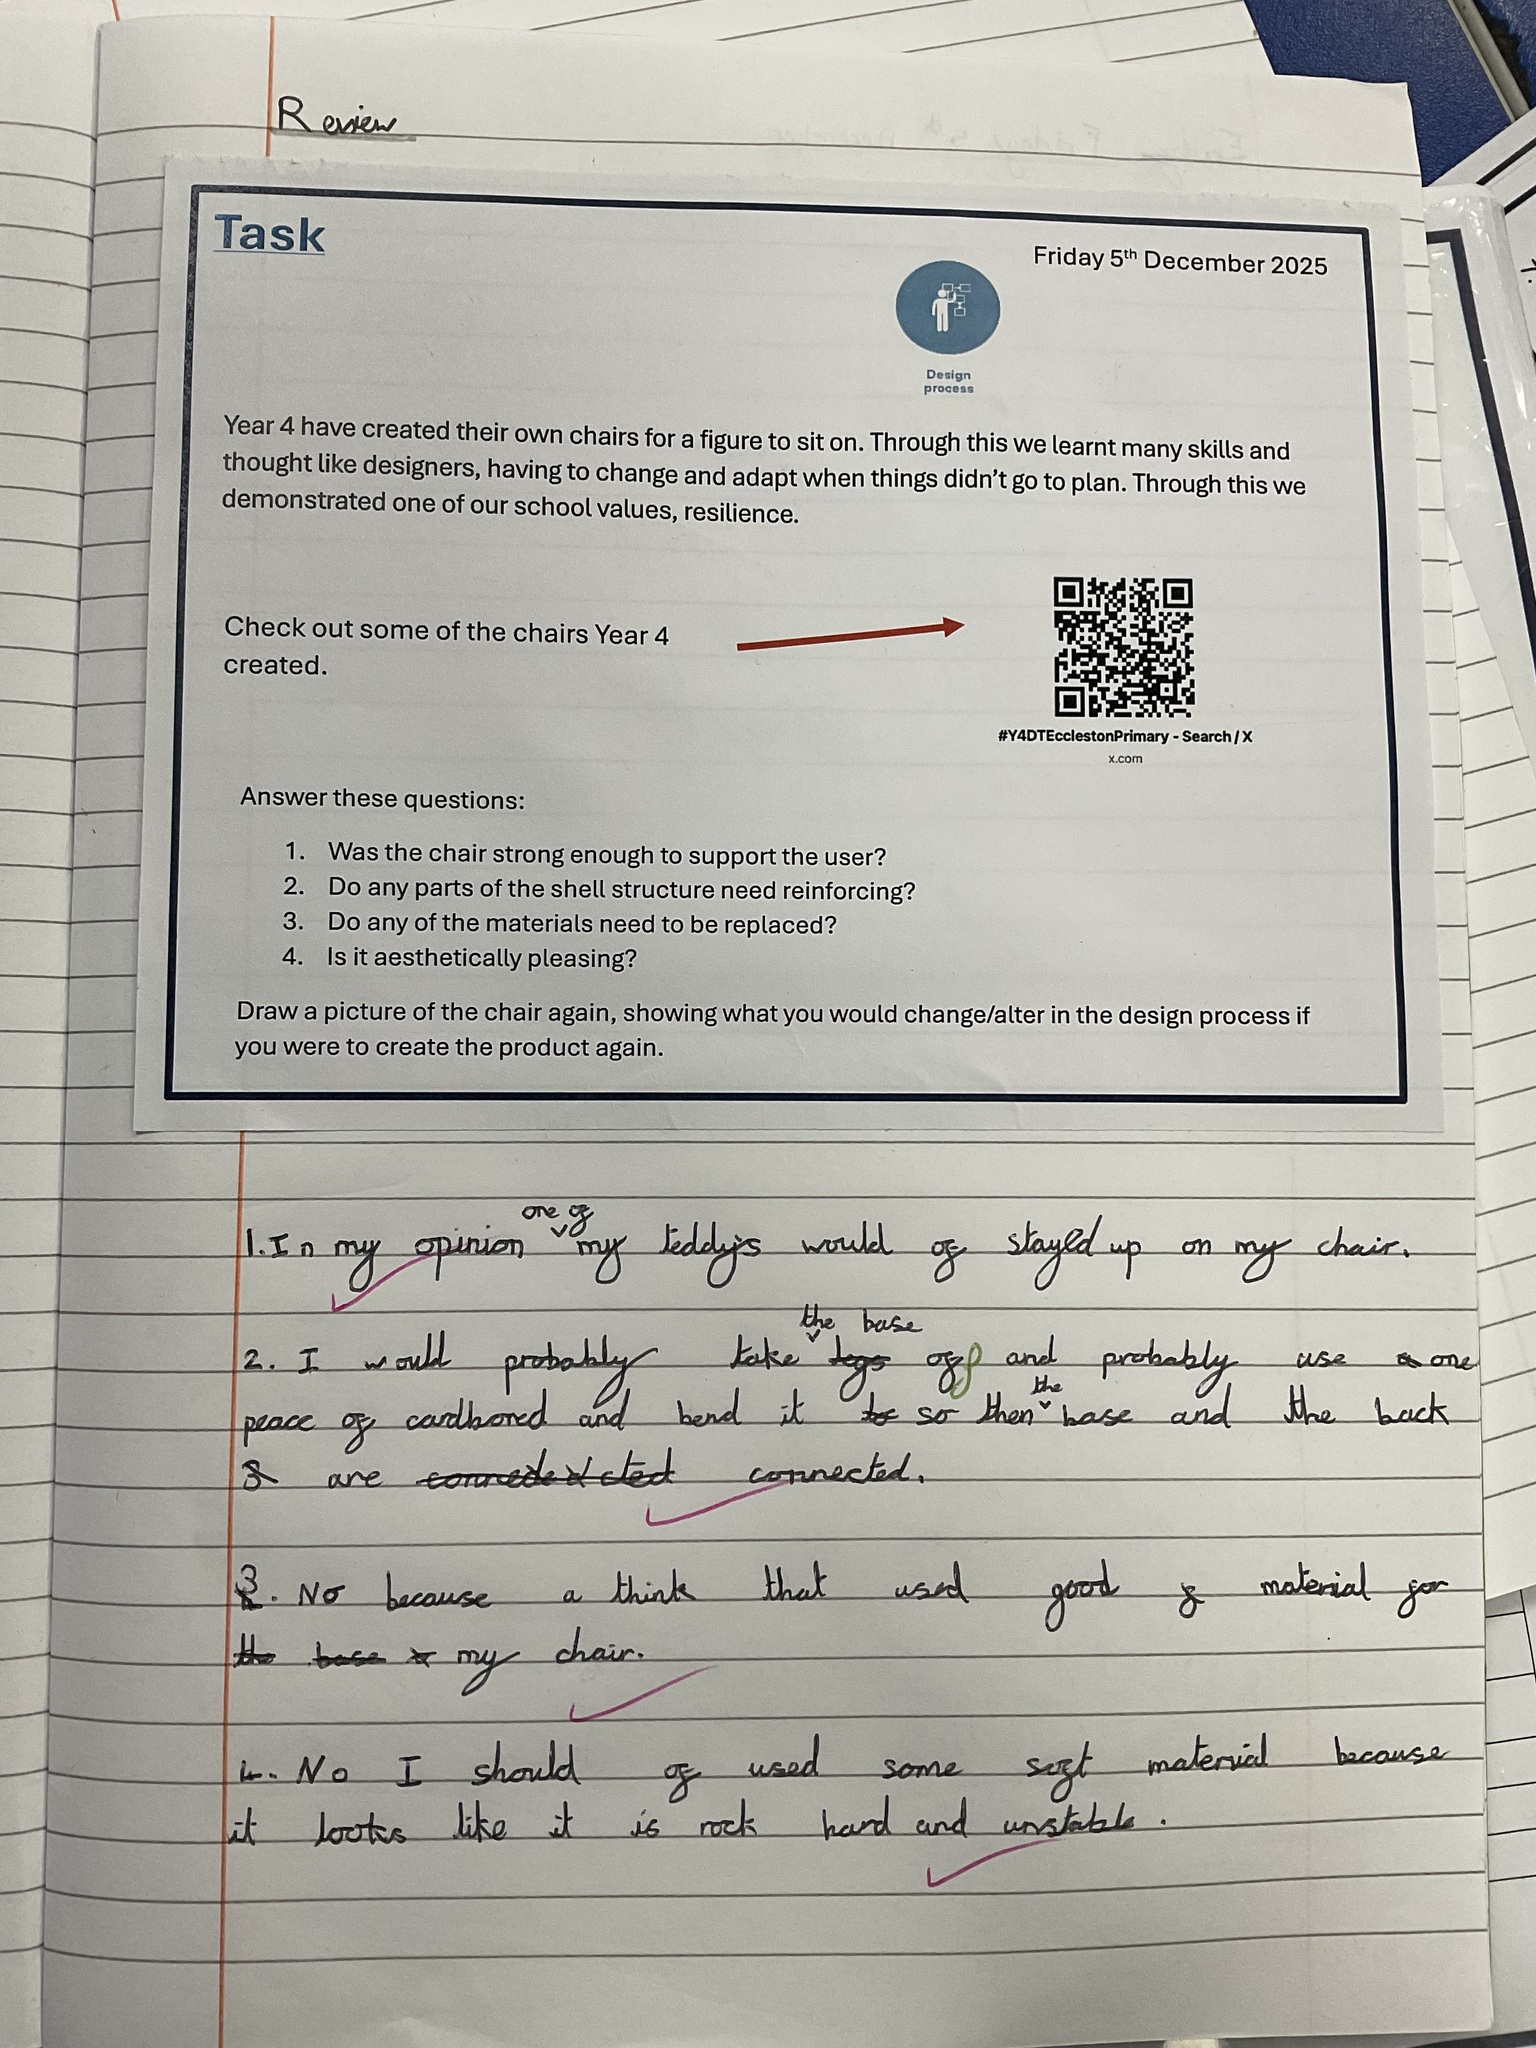 Review
Task
Friday 5th December 2025
Design
process
Year 4 have created their own chairs for a figure to sit on. Through this we learnt many skills and
thought like designers, having to change and adapt when things didn't go to plan. Through this we
demonstrated one of our school values, resilience.
Check out some of the chairs Year 4
created.
#Y4DTEcclestonPrimary - Search / X
x.com
Answer these questions:
1. Was the chair strong enough to support the user?
2. Do any parts of the shell structure need reinforcing?
3. Do any of the materials need to be replaced?
4. Is it aesthetically pleasing?
Draw a picture of the chair again, showing what you would change/alter in the design process if
you were to create the product again.
1. In my opinion one of my teddys would of stayed up on my chair.
2. I would probably take the base off and probably use one
peace of cardbored and bend it so then the base and the back
are connected.
3. No because a think that used good material for
my chair.
4. No I should of used some soft material because
it looks like it is rock hard and unstable.